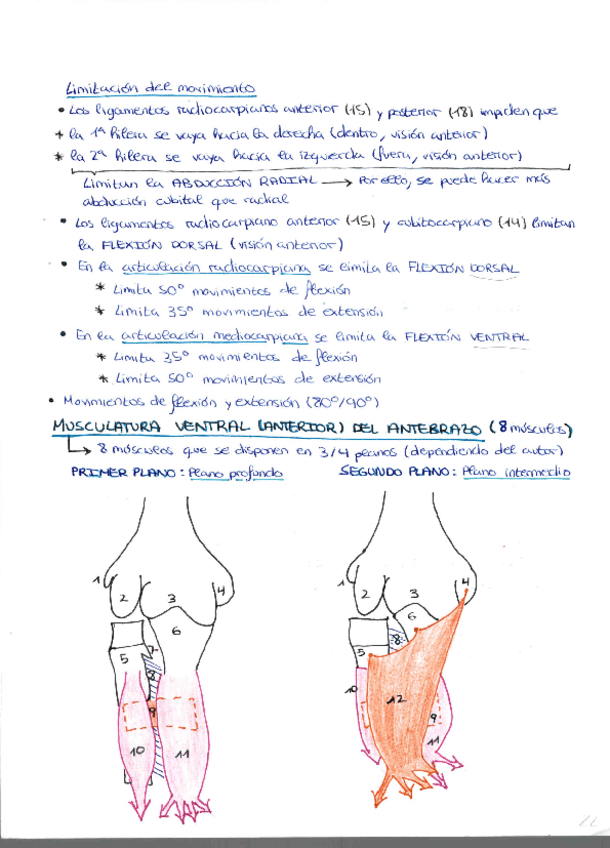 Limitación del movimiento
• Los ligamentos radiocarpianos anterior (15) y posterior (18) impiden que
* la 1ª hilera se vaya hacia la derecha (dentro, visión anterior)
* la 2ª hilera se vaya hacia la izquierda (fuera, visión anterior)
Limitan la ABDUCCIÓN RADIAL → Por ello, se puede hacer más
abducción cubital que radial
• Los ligamentos radiocarpiano anterior (15) y cubitocarpiano (14) limitan
la FLEXIÓN DORSAL (visión anterior)
• En la articulación radiocarpiana se limita la FLEXIÓN DORSAL
* Limita 50º movimientos de flexión
* Limita 35º movimientos de extensión
• En la articulación mediocarpiana se limita la FLEXIÓN VENTRAL
* Limita 35º movimientos de flexión
* Limita 50º movimientos de extensión
• Movimientos de flexión y extensión (80º/90º)
MUSCULATURA VENTRAL (ANTERIOR) DEL ANTEBRAZO (8 músculos)
↳ 8 músculos que se disponen en 3/4 planos (dependiendo del autor)
PRIMER PLANO: Plano profundo
SEGUNDO PLANO: Plano intermedio
1 2 3 4
6
5 7
8
9
10 11
1 2 3 4
6
5 8
10 12
9
11